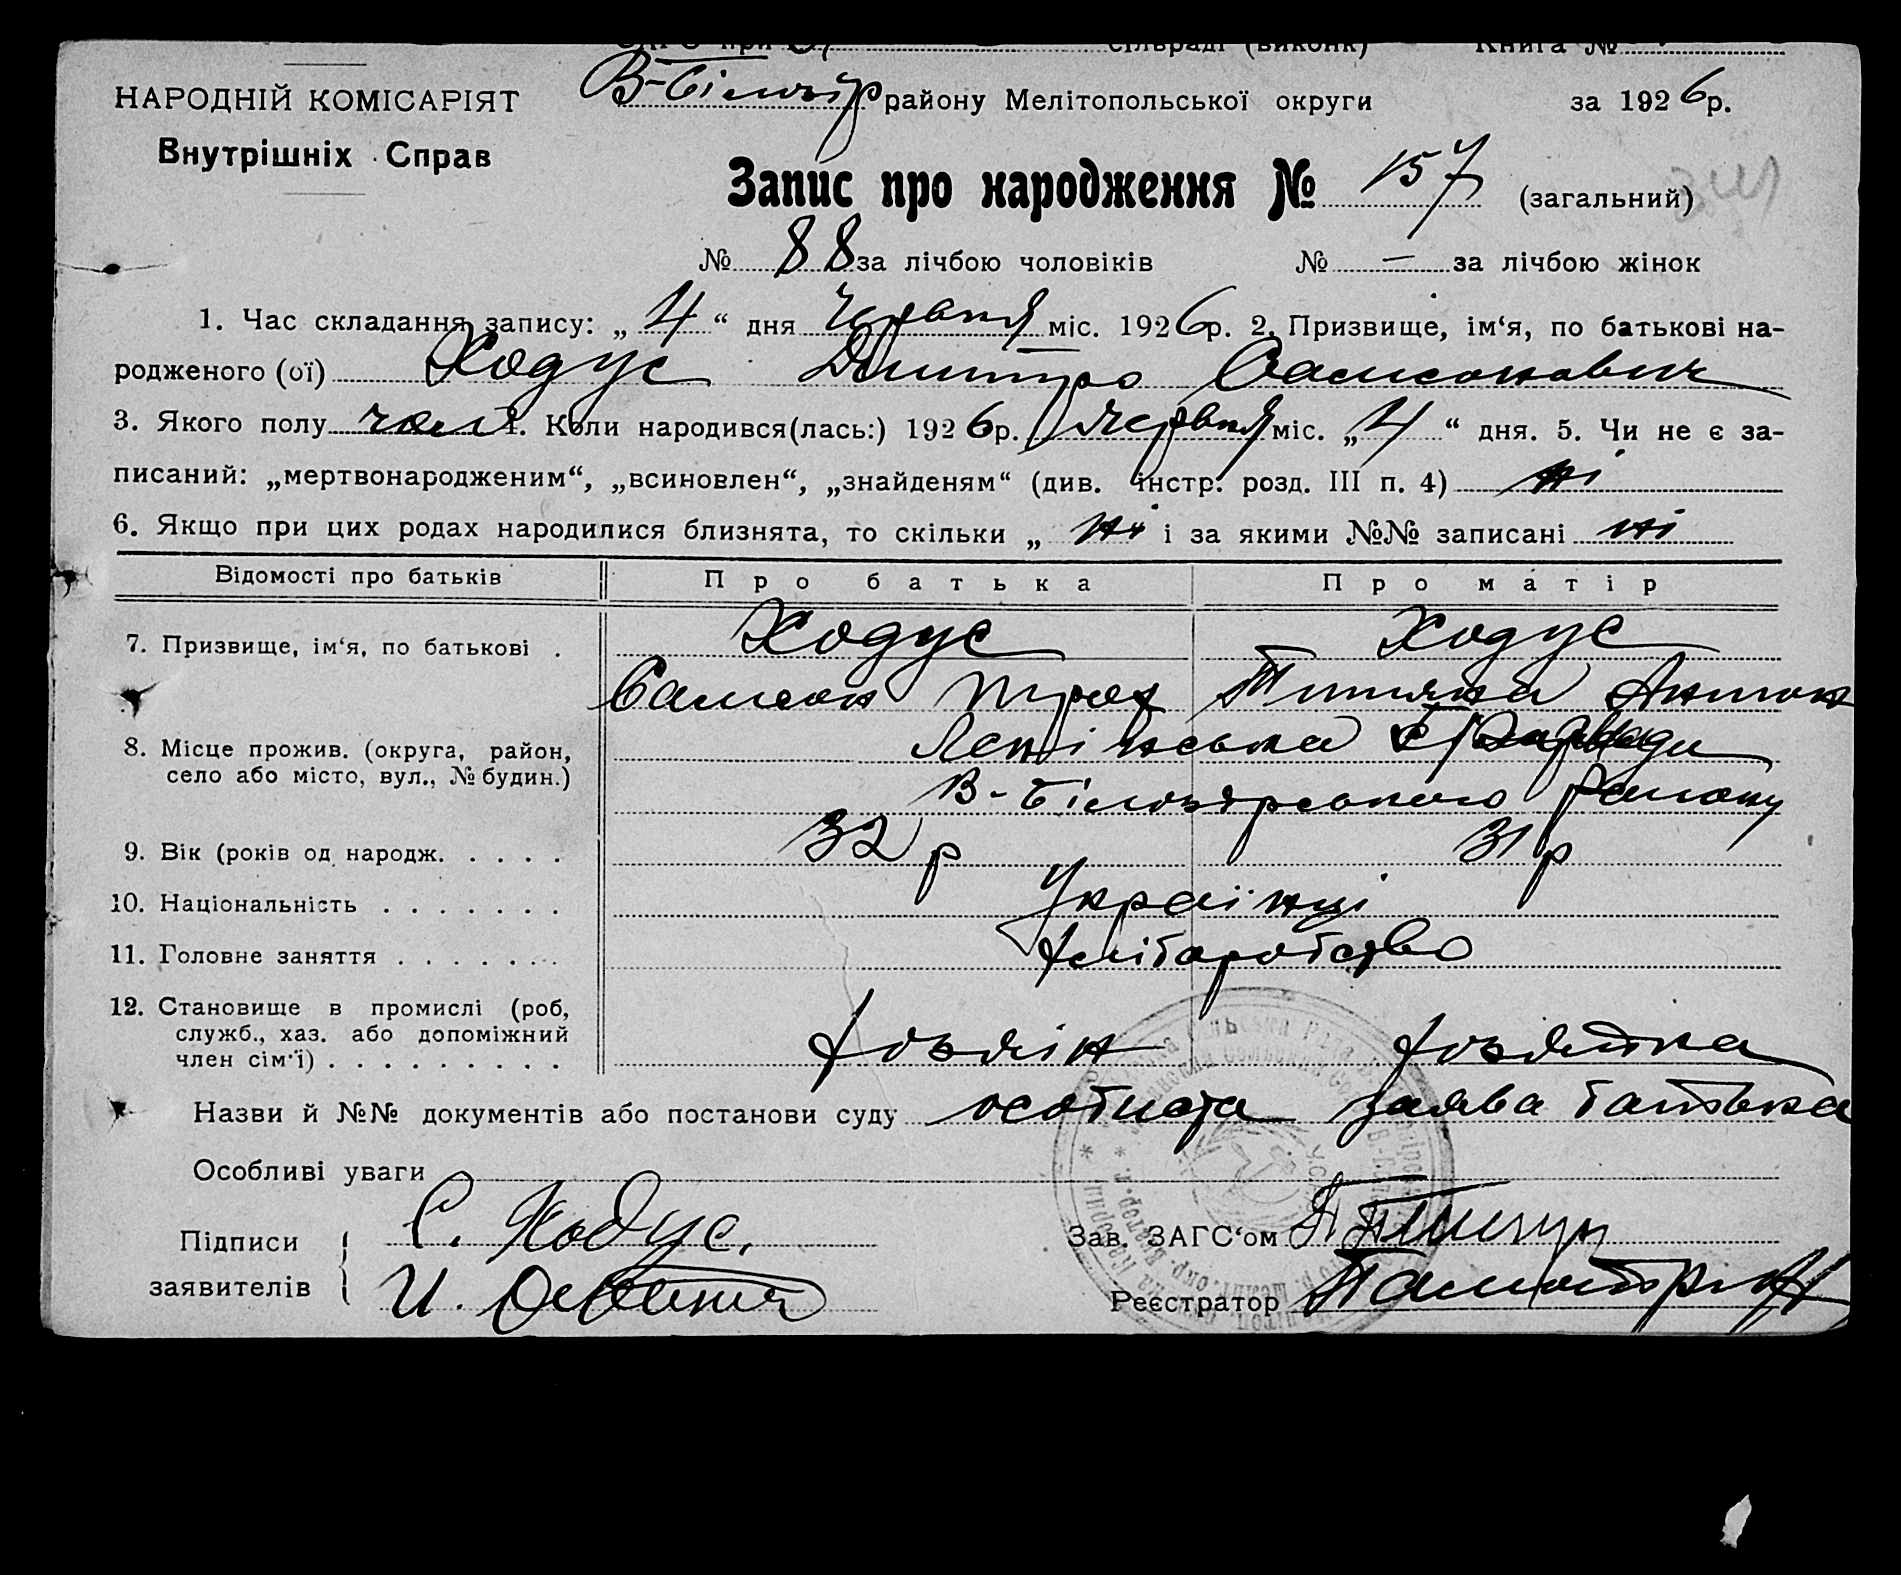 сільраді (виконк) Книга №
НАРОДНІЙ КОМІСАРІЯТ
В-Білозір району Мелітопольської округи за 1926р.
Внутрішніх Справ
Запис про народження № 157 (загальний)
№ 88 за лічбою чоловіків № — за лічбою жінок
1. Час складання запису: „ 4 “ дня Червня міс. 1926р. 2. Призвище, ім‘я, по батькові на-
родженого (ої) Ходус Дмитро Самсонович
3. Якого полу чол 4. Коли народився(лась:) 1926р. червня міс. „ 4 “ дня. 5. Чи не є за-
писаний: „мертвонародженим“, „всиновлен“, „знайденям“ (див. інстр. розд. III п. 4) ні
6. Якщо при цих родах народилися близнята, то скільки „ ні і за якими №№ записані ні
Відомості про батьків Про батька Про матір
7. Призвище, ім‘я, по батькові . Ходус Ходус
Самсон Троф Тетяна Антон
8. Місце прожив. (округа, район, Ленінська
село або місто, вул., № будин.) В-Білозірського Району
9. Вік (років од народж. . . . . 32 р 31 р
10. Національність . . . . . . . Українці
11. Головне заняття . . . . . . . хліборобство
12. Становище в промислі (роб,
служб., хаз. або допоміжний
член сім‘ї) . . . . . . . . . . хозяїн хозяйка
Назви й №№ документів або постанови суду особиста заява батька
Особливі уваги
Підписи С. Ходус. Зав. ЗАГС‘ом
заявителів И. Реєстратор